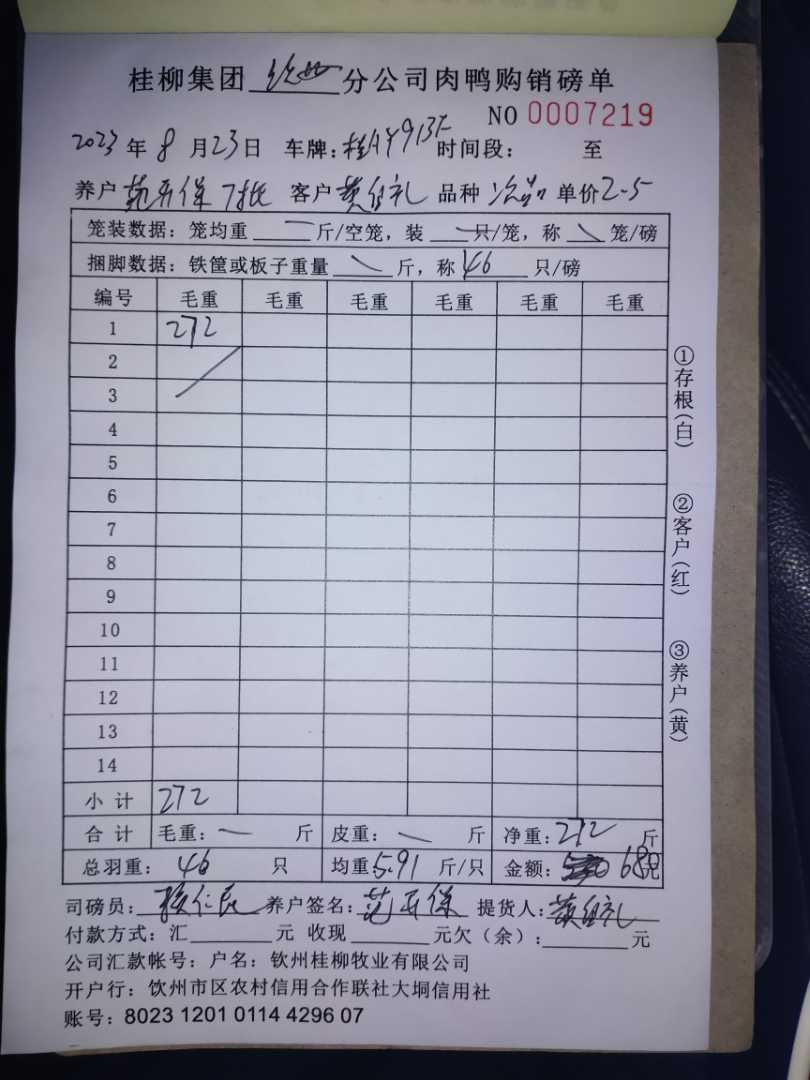 桂柳集团 钦州 分公司肉鸭购销磅单
NO 0007219
2023 年 8 月 23 日 车牌: 桂AY913F 时间段: 至
养户 范开保 7批 客户 黄自礼 品种 次品 单价 2-5
笼装数据: 笼均重 — 斤/空笼, 装 — 只/笼, 称 \ 笼/磅
捆脚数据: 铁筐或板子重量 \ 斤, 称 46 只/磅
编号 毛重 毛重 毛重 毛重 毛重 毛重
1 272
2
3
4
5
6
7
8
9
10
11
12
13
14
小计 272
合计 毛重: — 斤 皮重: — 斤 净重: 272 斤
总羽重: 46 只 均重 5.91 斤/只 金额: 680元
司磅员: 养户签名: 范开保 提货人: 黄自礼
付款方式: 汇 元 收现 元欠(余): 元
公司汇款帐号: 户名: 钦州桂柳牧业有限公司
开户行: 饮州市区农村信用合作联社大垌信用社
账号: 8023 1201 0114 4296 07
①存根(白)
②客户(红)
③养户(黄)